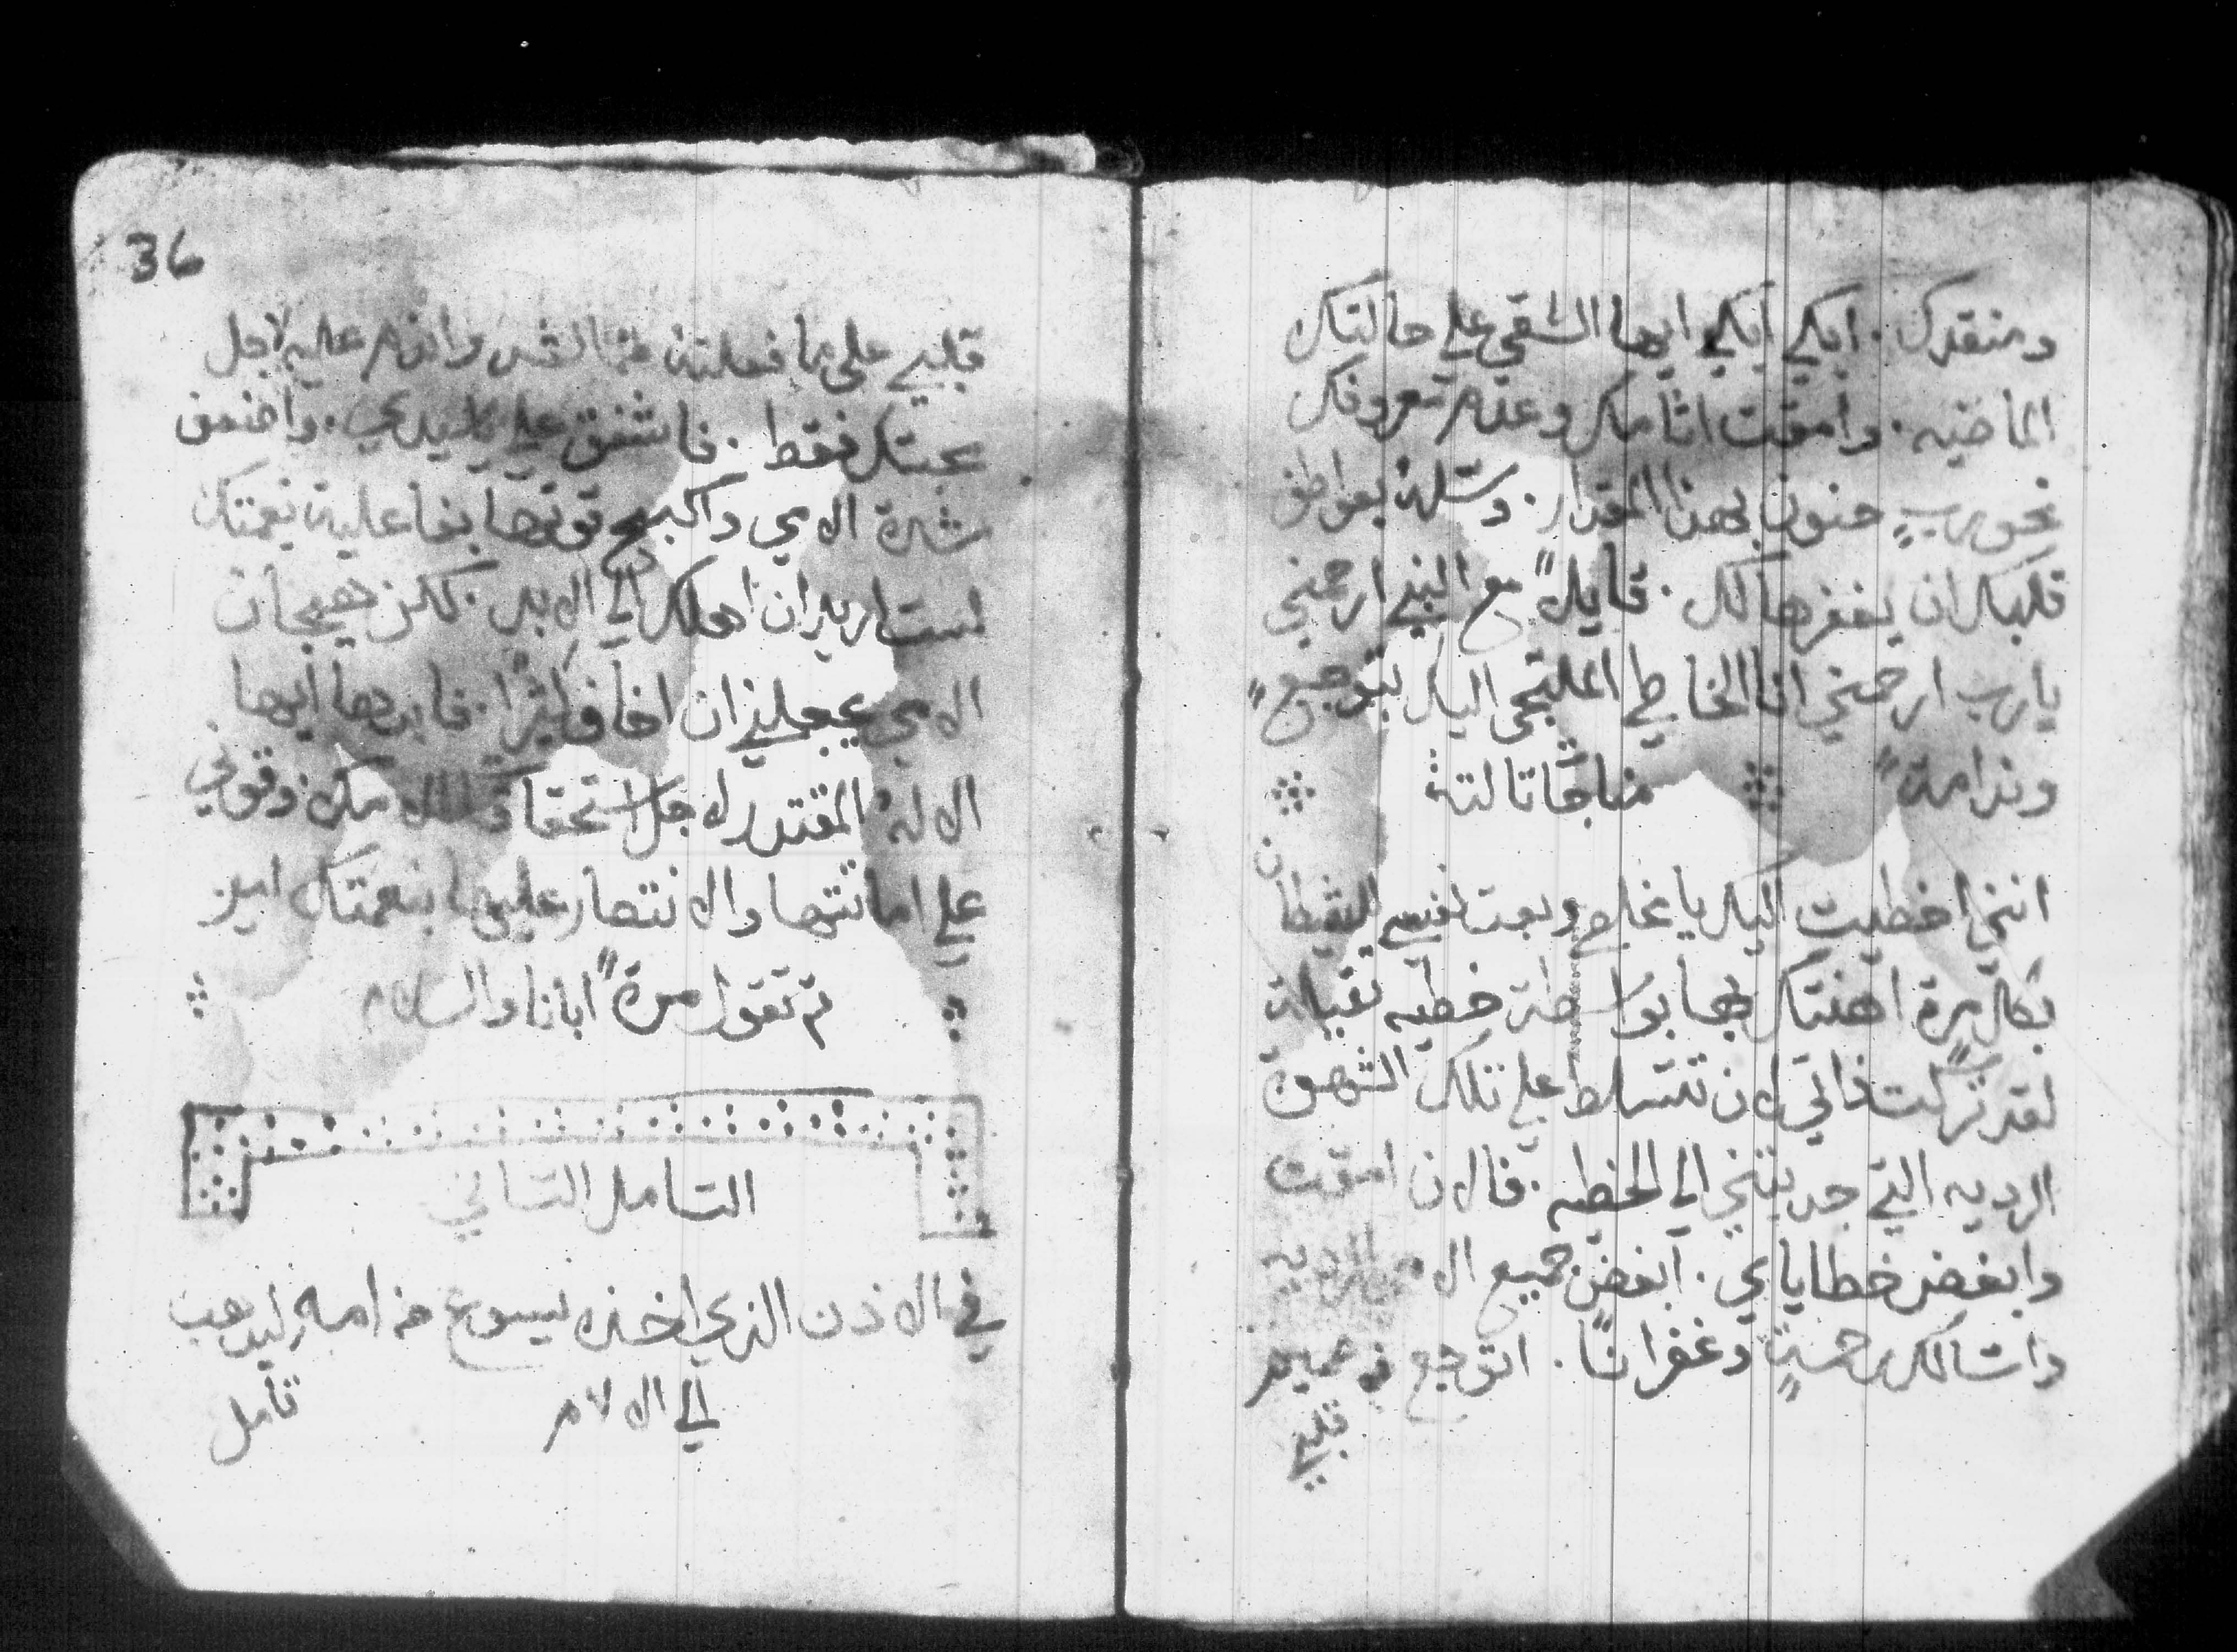 ومنقدك. ابكي ابكي ايها الشقي علي حالتك
الماضيه. وامقت اثامك وعدم معروفك
نحو ربٍ حنون بهذا المقدار. وسله بعواطف
قلبك ان يغفرها لك. قايلاً مع النبي ارحمني
يا رب ارحمني انا الخاطي الملتجي اليك بتوجعٍ
وندامةٍ
مناجاة ثالثة
انني اخطيت اليك يا مخلصي وبعت نفسي للشيطان
بكل مرة اهنتك بها بواسطة خطيه ثقيلة
لقد تركت ذاتي لان تتسلط علي تلك الشهوة
الرديه التي جدبتني الي الخطيه. فالان امقت
وابغض خطاياي. ابغض جميع الرديه
واسالك رحمةً وغفرانًا. اتوجع من صميم
قلبي
36
قلبي علي ما فعلته واندم عليه لاجل
محبتك فقط. فاشفق علي يا سيدي. واخفض
شدة الامي واكبح قوتها بفاعلية نعمتك
لست اريد ان اهلك الي الابد. لكن هيجان
الامي يجعلني ان اخاف كثيرًا. فابدها ايها
الاله المقتدر لاجل استحقاق الامك. وقوني
علي اماتتها والانتصار عليها بنعمتك امين
ثم تقول مرةً ابانا والسلام
التامل الثاني
في الاذن الذي اخذه يسوع من امه ليذهب
الي الالام
تامل